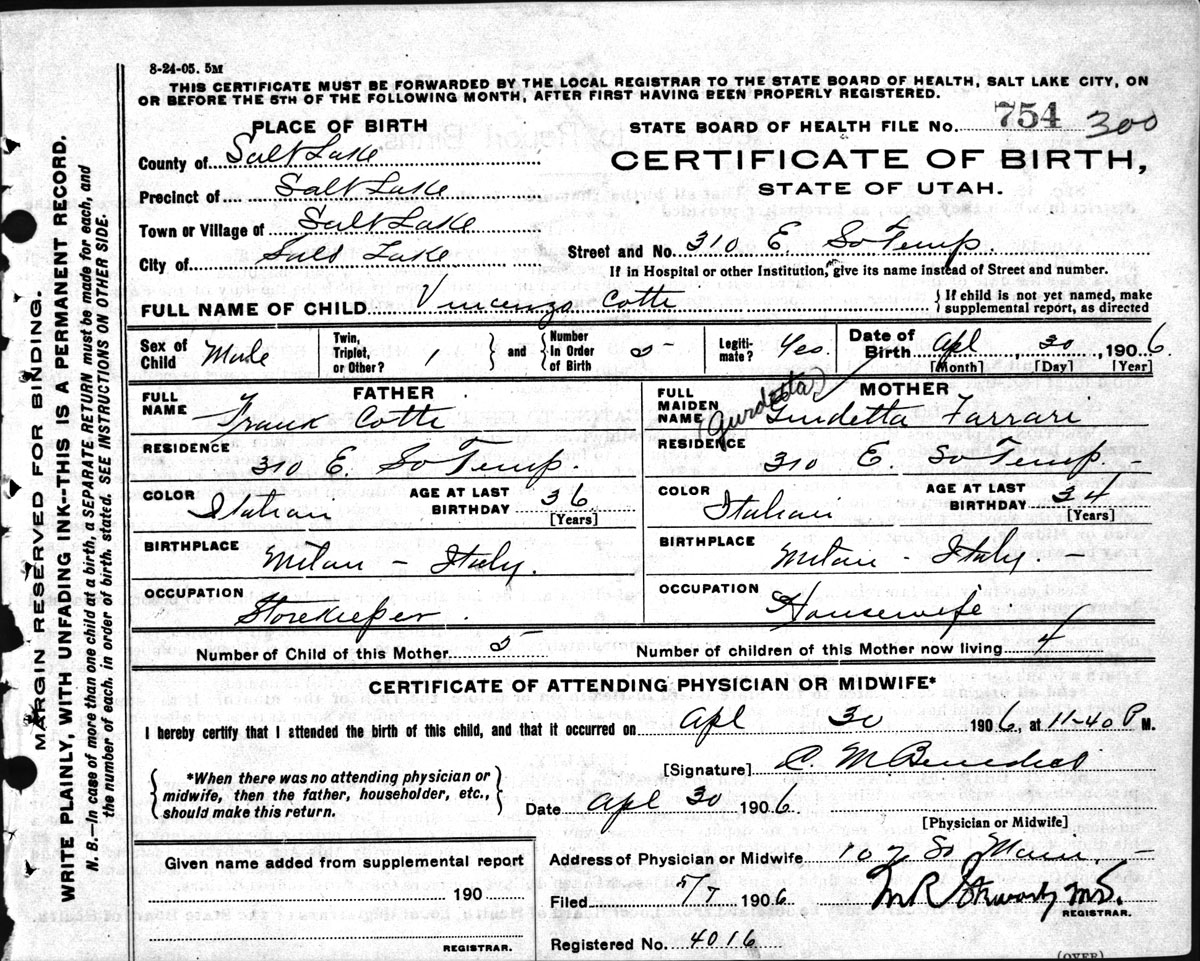 8-24-05. 5M
THIS CERTIFICATE MUST BE FORWARDED BY THE LOCAL REGISTRAR TO THE STATE BOARD OF HEALTH, SALT LAKE CITY, ON
OR BEFORE THE 5TH OF THE FOLLOWING MONTH, AFTER FIRST HAVING BEEN PROPERLY REGISTERED.
PLACE OF BIRTH
STATE BOARD OF HEALTH FILE No. 754 300
County of Salt Lake
CERTIFICATE OF BIRTH,
Precinct of Salt Lake
STATE OF UTAH.
Town or Village of Salt Lake
City of Salt Lake
Street and No. 310 E. So Temp.
If in Hospital or other Institution, give its name instead of Street and number.
FULL NAME OF CHILD Vincenzo Cotti
{If child is not yet named, make supplemental report, as directed
Sex of Child Male
Twin, Triplet, or Other? 1 and {Number In Order of Birth 5
Legiti- mate? Yes.
Date of Birth Apl 30, 1906.
[Month] [Day] [Year]
FATHER
FULL NAME Frank Cotti
RESIDENCE
310 E. So Temp.
COLOR Italian
AGE AT LAST BIRTHDAY 36
[Years]
BIRTHPLACE
Milan - Italy.
OCCUPATION
Storekeeper.
MOTHER
FULL MAIDEN NAME (Giurdetta) Farrari
RESIDENCE
310 E. So Temp.
COLOR Italian
AGE AT LAST BIRTHDAY 34
[Years]
BIRTHPLACE
Milan - Italy. -
OCCUPATION
Housewife
Number of Child of this Mother 5
Number of children of this Mother now living 4
CERTIFICATE OF ATTENDING PHYSICIAN OR MIDWIFE*
I hereby certify that I attended the birth of this child, and that it occurred on Apl 30 1906, at 11-40 P M.
[Signature] C. M. Benedict
{*When there was no attending physician or
midwife, then the father, householder, etc.,
should make this return.}
Date Apl 30 1906.
[Physician or Midwife]
Given name added from supplemental report
190
REGISTRAR.
Address of Physician or Midwife 107 So Main. -
Filed 5/7 1906
M.D.
REGISTRAR.
Registered No. 4016
(OVER)
MARGIN RESERVED FOR BINDING.
WRITE PLAINLY, WITH UNFADING INK--THIS IS A PERMANENT RECORD.
N. B.—In case of more than one child at a birth, a SEPARATE RETURN must be made for each, and
the number of each, in order of birth, stated. SEE INSTRUCTIONS ON OTHER SIDE.